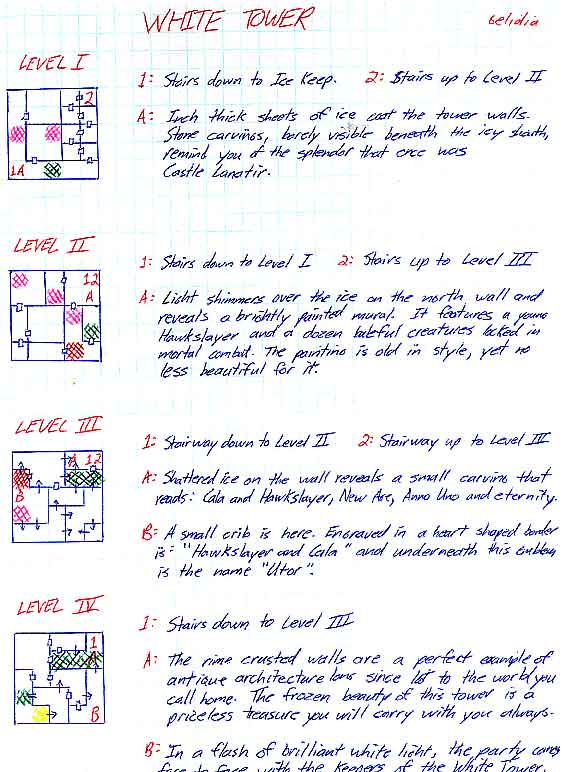 WHITE TOWER
Gelidia
LEVEL I
1: Stairs down to Ice Keep. 2: Stairs up to Level II
A: Inch thick sheets of ice coat the tower walls.
Stone carvings, barely visible beneath the icy sheath,
remind you of the splendor that once was
Castle Lanatir.
2
1A
LEVEL II
1: Stairs down to Level I 2: Stairs up to Level III
A: Light shimmers over the ice on the north wall and
reveals a brightly painted mural. It features a young
Hawkslayer and a dozen baleful creatures locked in
mortal combat. The painting is old in style, yet no
less beautiful for it.
12
A
LEVEL III
1: Stairway down to Level II 2: Stairway up to Level III
A: Shattered ice on the wall reveals a small carving that
reads: Cala and Hawkslayer, New Age, Anno Uno and eternity.
B: A small crib is here. Engraved in a heart shaped border
is: "Hawkslayer and Cala" and underneath this emblem
is the name "Utor".
A 12
B
LEVEL IV
1: Stairs down to Level III
A: The rime crusted walls are a perfect example of
antique architecture long since lost to the world you
call home. The frozen beauty of this tower is a
priceless treasure you will carry with you always.
1
A
B
B: In a flash of brilliant white light, the party comes
face to face with the Keepers of the White Tower.